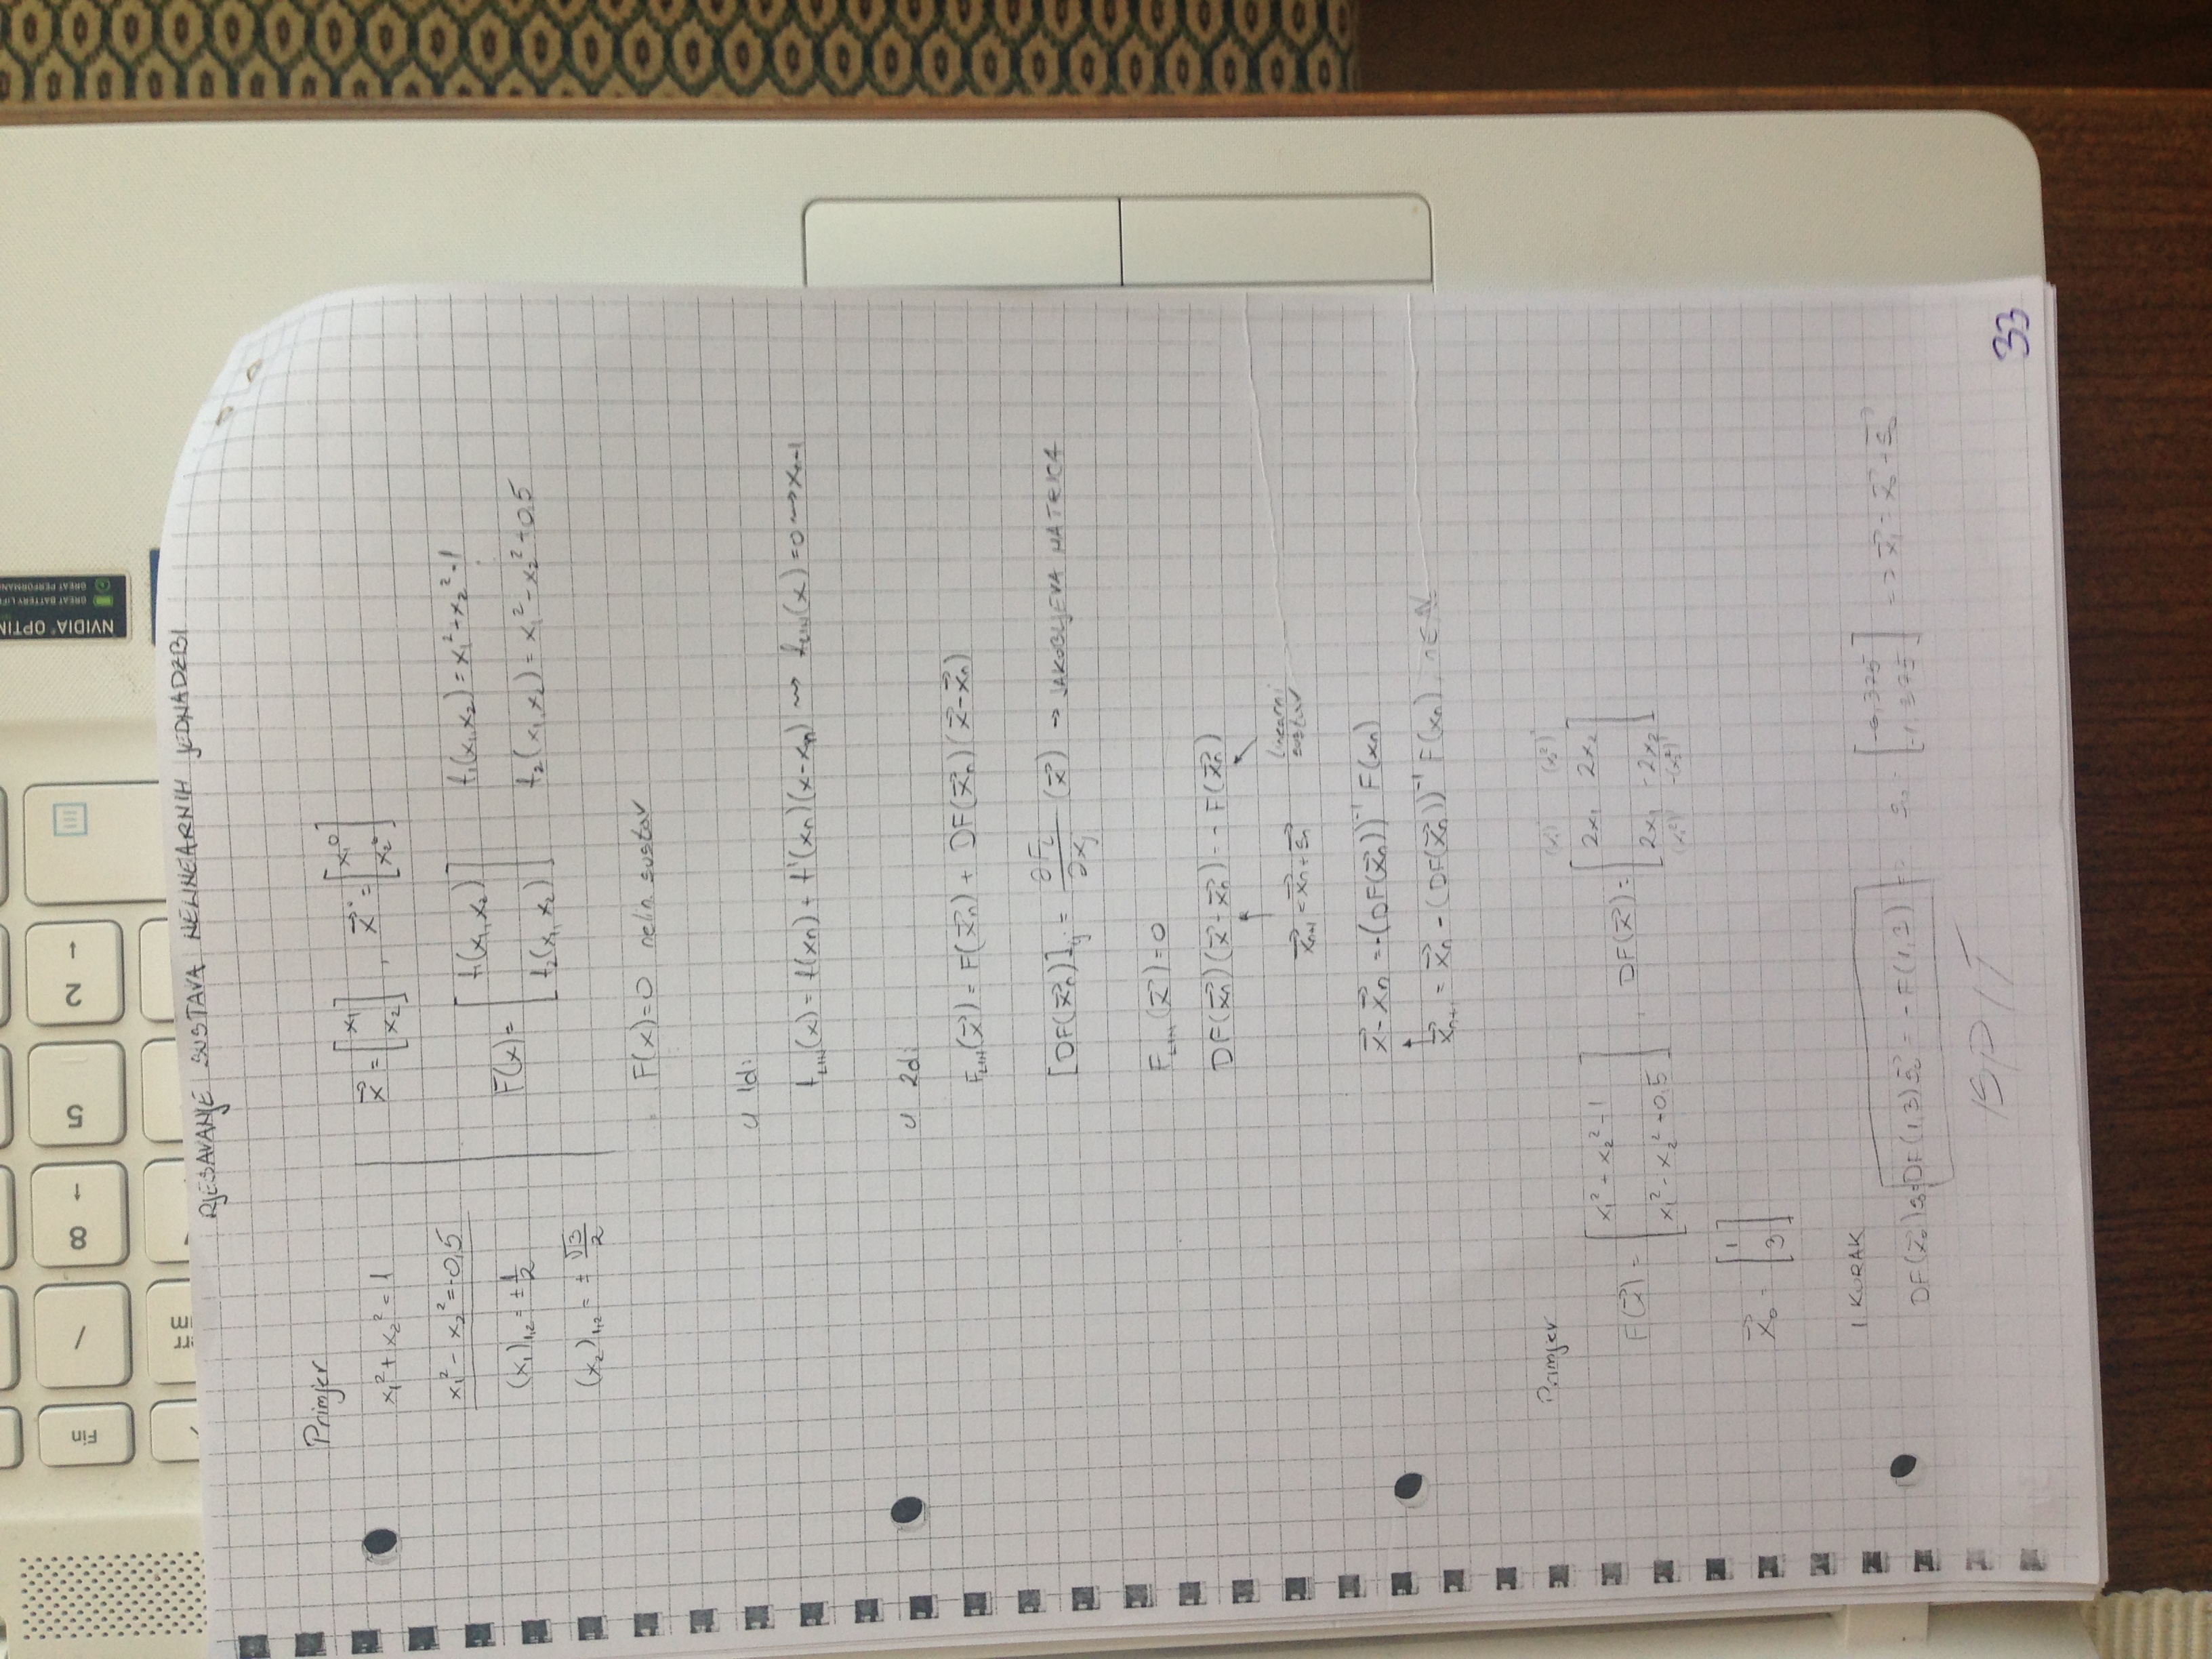 Fin
/
8 ↑
5
2 ↓
NVIDIA® OPTIM
GREAT BATTERY LIFE
GREAT PERFORMANCE
RJEŠAVANJE SUSTAVA NELINEARNIH JEDNADŽBI
Primjer
x₁² + x₂² = 1
x₁² - x₂² = -0,5
(x₁)₁,₂ = ± 1/2
(x₂)₁,₂ = ± √3/2
x⃗ = [x₁ x₂], x⃗° = [x₁⁰ x₂⁰]
F(x) = [f₁(x₁, x₂) f₂(x₁, x₂)]
f₁(x₁, x₂) = x₁² + x₂² - 1
f₂(x₁, x₂) = x₁² - x₂² + 0,5
F(x) = 0 nelin. sustav
U 1d:
f_LIN(x) = f(xn) + f'(xn)(x - xn) ⇝ f_LIN(x) = 0 ⇝ xn+1
U 2d:
F_LIN(x⃗) = F(x⃗n) + DF(x⃗n)(x⃗ - x⃗n)
[DF(x⃗n)]ij = ∂Fi/∂xj (x⃗) → JAKOBIJEVA MATRICA
F_LIN(x⃗) = 0
DF(x⃗n)(x⃗ - x⃗n) = - F(x⃗n)
x⃗n+1 = x⃗n + s⃗n
linearni sustav
x⃗ - x⃗n = -(DF(x⃗n))⁻¹ F(xn)
x⃗n+1 = x⃗n - (DF(x⃗n))⁻¹ F(xn), n∈N
Primjer
F(x⃗) = [x₁² + x₂² - 1 x₁² - x₂² + 0,5], DF(x⃗) = [2x₁ 2x₂ 2x₁ -2x₂]
(x₁²)' (x₂²)'
(x₁²)' -(x₂²)'
x⃗₀ = [1 3]
1. KORAK
DF(x⃗₀)s = DF(1,3)s⃗₀ = - F(1,3) => s₀ = [-0,375 -1,375] => x⃗₁ = x⃗₀ + s⃗₀
ISPIT
33